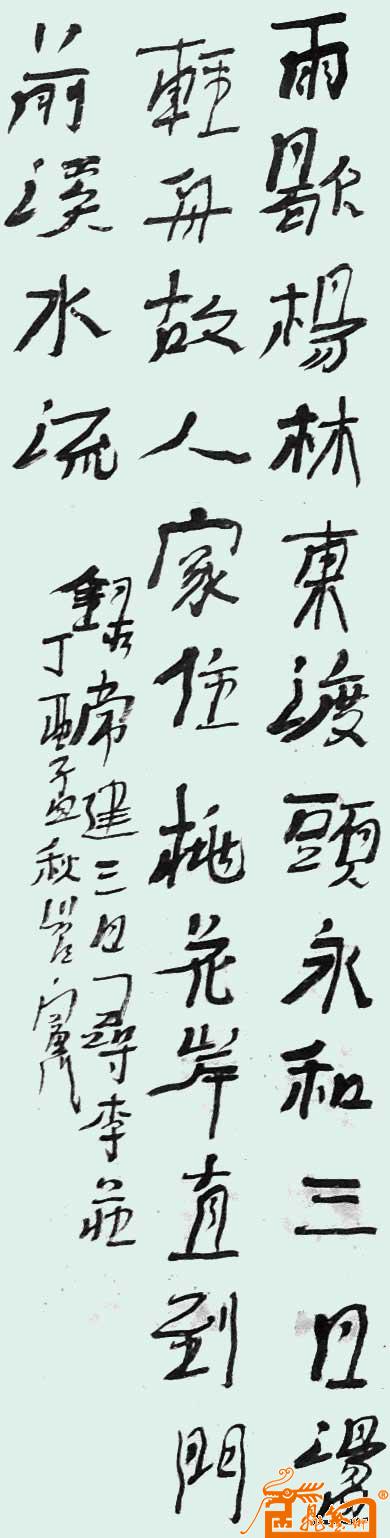 雨歇楊林東渡頭永和三日盪
輕舟故人家住桃花岸直到門
前溪水流
錄 常建三日尋李莊
丁 孟秋